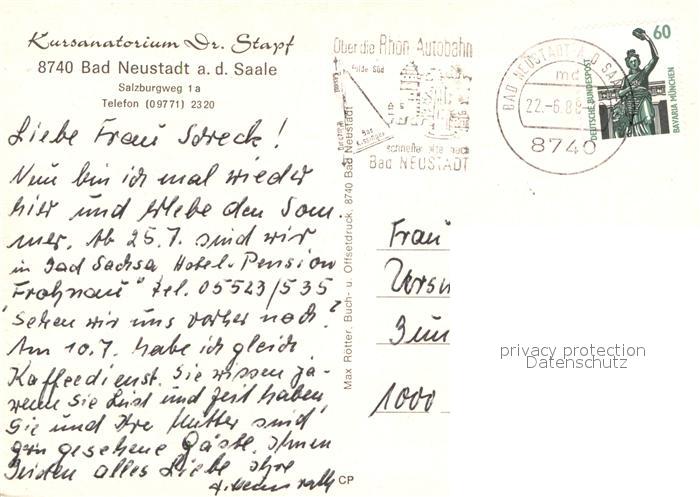 Kursanatorium Dr. Stapf
8740 Bad Neustadt a. d. Saale
Salzburgweg 1a
Telefon (09771) 2320
Liebe Frau Schreck!
Nun bin ich mal wieder
hier und erlebe den Som-
mer. Ab 25.7. sind wir
in Bad Sachsa, Hotel-Pension
"Frohnau" Tel. 05523/535
Sehen wir uns vorher noch?
Am 10.7. habe ich gleich
Kaffeedienst. Sie wissen ja-
wenn Sie Lust und Zeit haben,
Sie und Ihre Mutter sind
gern gesehene Gäste. Ihnen
beiden alles Liebe Ihre
Max Rötter, Buch- u. Offsetdruck, 8740 Bad Neustadt
CP
Über die Rhön Autobahn
Fulda Süd
Bad
Kissingen
schneller
nach
Bad NEUSTADT
BAD NEUSTADT A D SAALE
md
22.-6.88
8740
60
DEUTSCHE BUNDESPOST
BAVARIA MÜNCHEN
Frau
Ursu
1000
privacy protection
Datenschutz